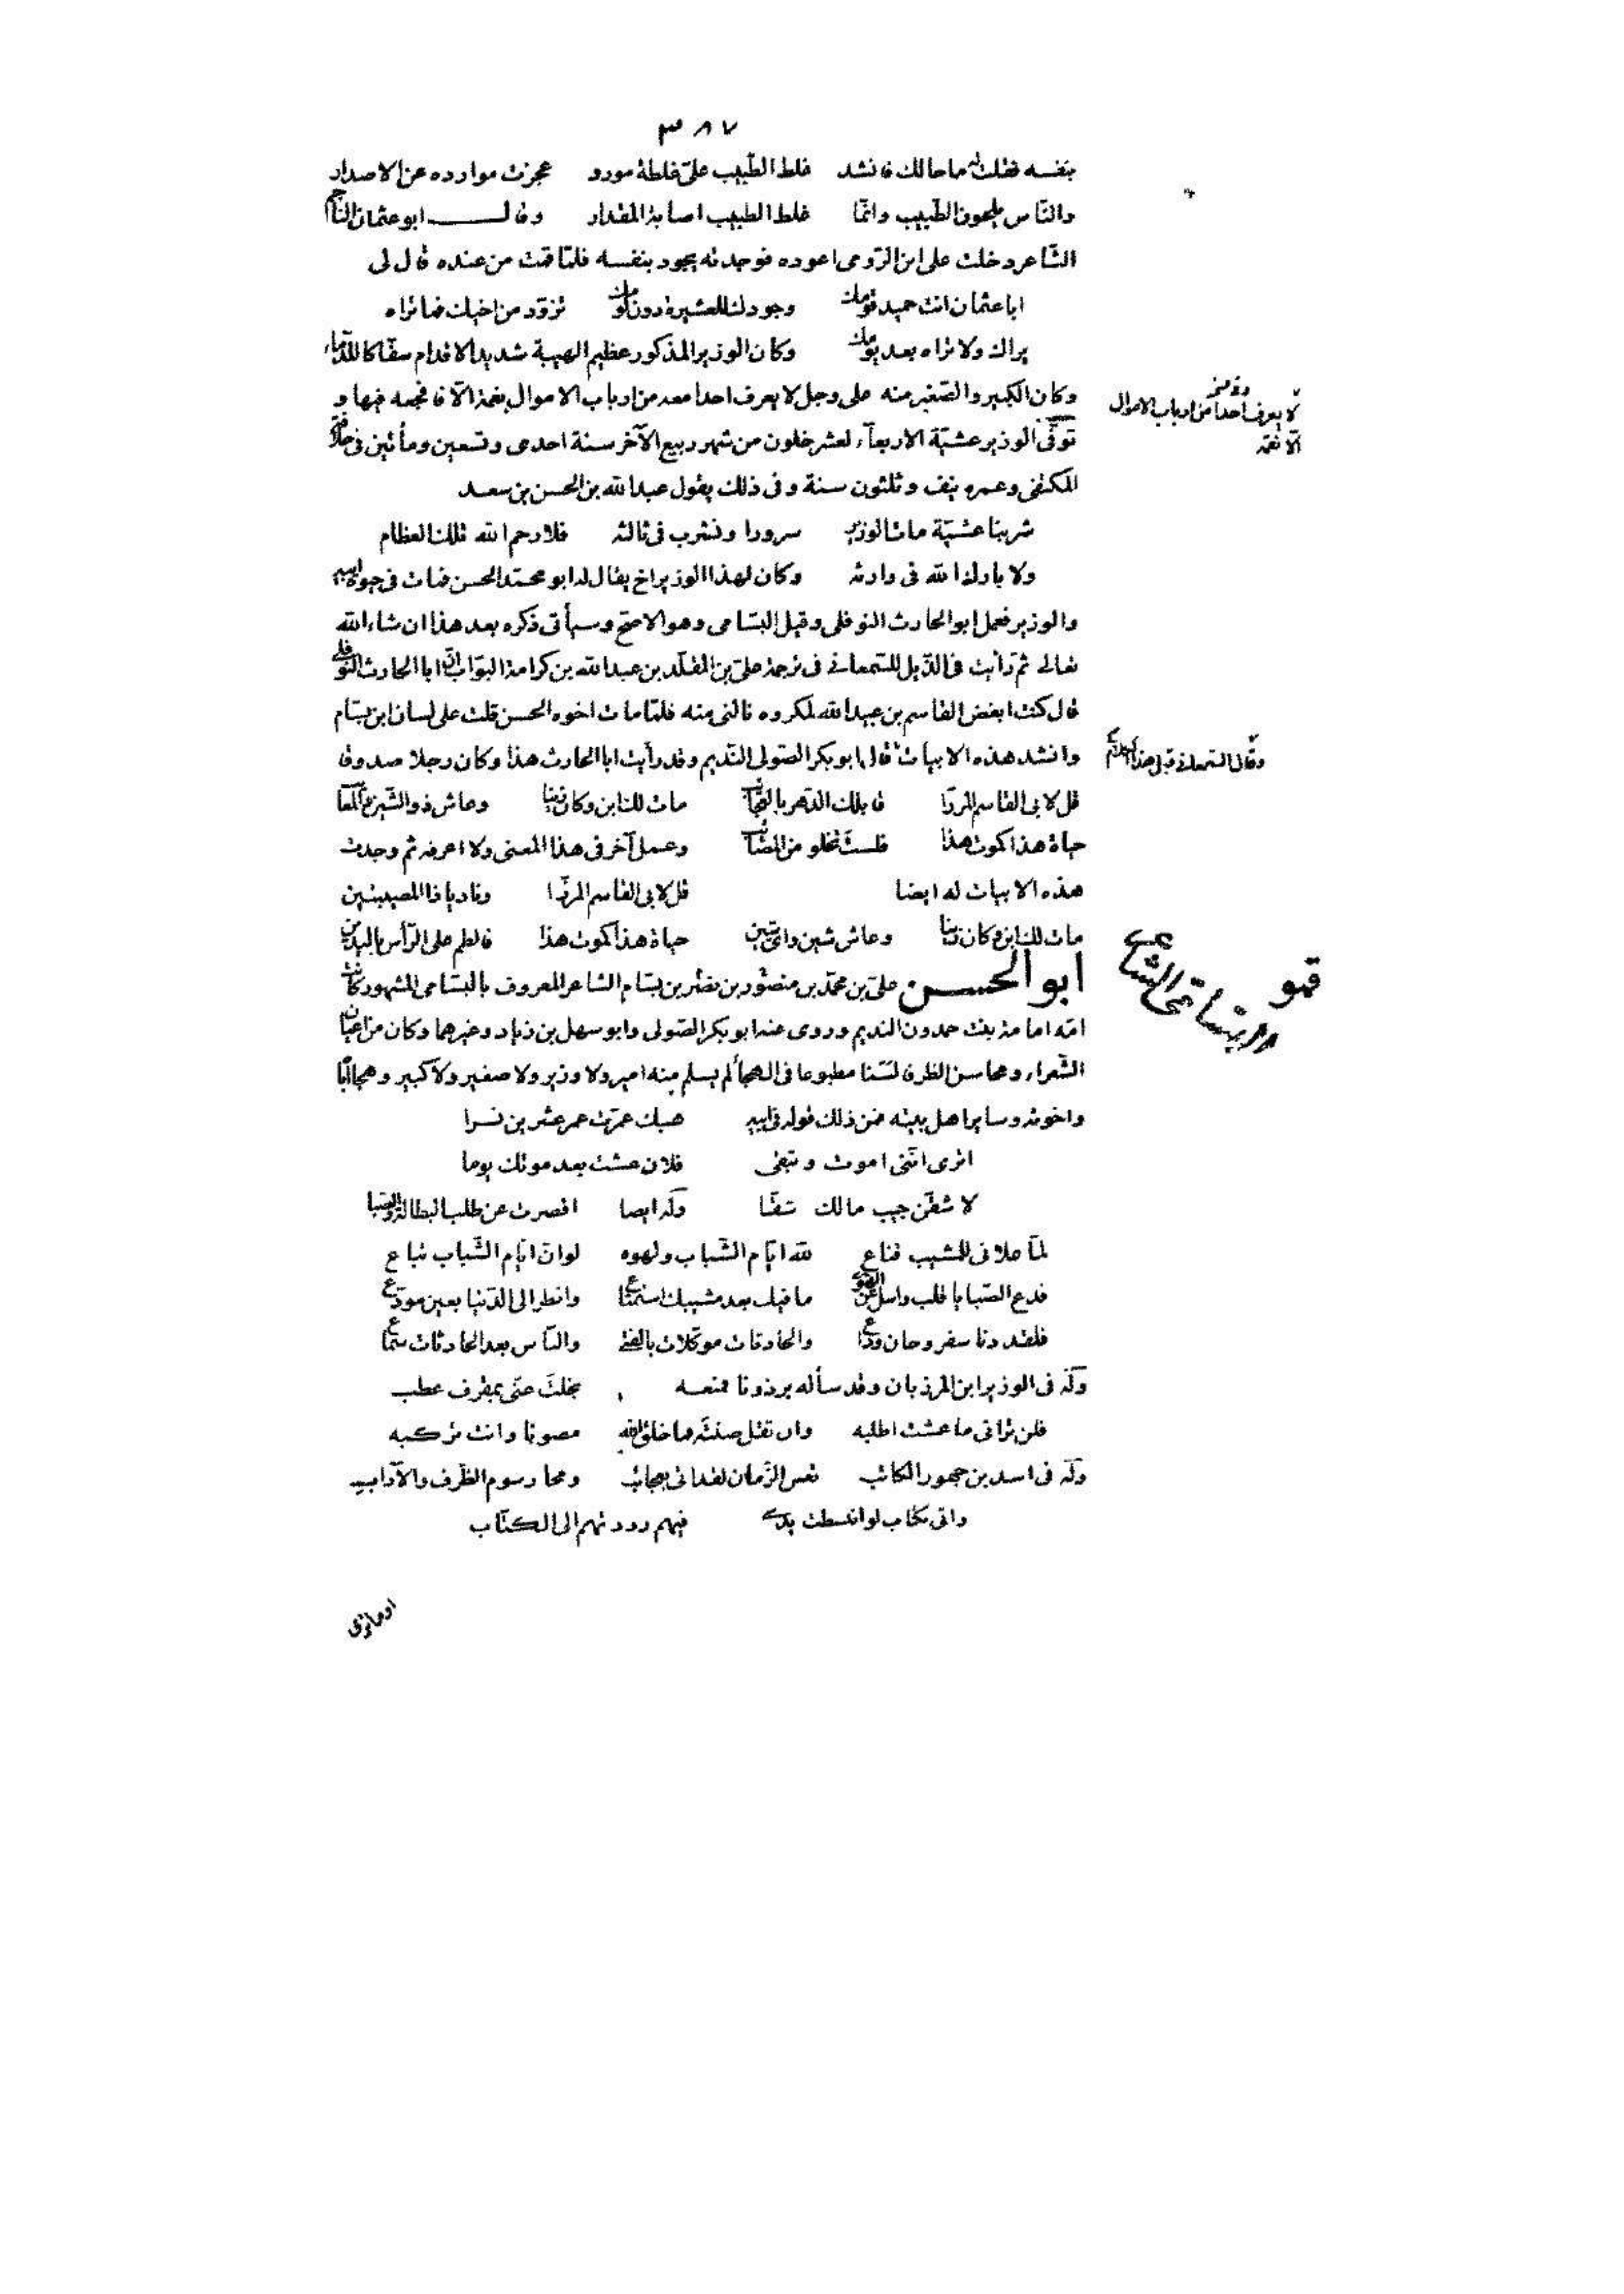 ٣٨٧
بنفسه فقلت له ما حالك فانشد غلط الطّبيب علىّ غلطة مورد عجزت موارده عن الاصدار
والنّاس يلحون الطّبيب وانّما غلط الطبيب اصابة المقدار وقال ابو عثمان الناجم
الشّاعر دخلت على ابن الرّومى اعوده فوجدته يجود بنفسه فلمّا قمت من عنده قال لى
ابا عثمان انت حميد قومك وجودك للعشيرة دون لومك تزوّد من اخيك فما تراه
يراك ولا تراه بعد يومك وكان الوزير المذكور عظيم الهيبة شديد الاقدام سفّاكا للدّماء
وكان الكبير والصّغير منه على وجل لا يعرف احدا معه من ارباب الاموال بنعمة الّا فجعه فيها و
توفّى الوزير عشيّة الاربعآء لعشر خلون من شهر ربيع الآخر سنة احدى وتسعين ومأتين فى خلافة
المكتفى وعمره نيف وثلثون سنة وفى ذلك يقول عبد الله بن الحسن بن سعد
شربنا عشيّة مات الوزير سرورا ونشرب فى ثالثه فلا رحم الله تلك العظام
ولا بارك الله فى وارثه وكان لهذا الوزير اخ يقال له ابو محمّد الحسن فمات فى حيوة ابيه
والوزير فعمل ابو الحارث النوفلى وقيل البسّامى وهو الاصحّ وسيأتى ذكره بعد هذا ان شاء الله
تعالى ثم رأيت فى الذّيل للسّمعانى فى ترجمة علىّ بن المقلّد بن عبد الله بن كرامة البوّاب انّ ابا الحارث النّوفلى
قال كنت ابغض القاسم بن عبيد الله لمكروه نالنى منه فلمّا مات اخوه الحسن قلت على لسان ابن بسّام
وانشد هذه الابيات قال ابو بكر الصّولى النّديم وقد رأيت ابا الحارث هذا وكان رجلا صدوقا
قل لابى القاسم المرزّا قابلك الدّهر بالعجائب مات لك ابن وكان زينا وعاش ذو الشّين والمعائب
حياة هذا كموت هذا فلست تخلو من المصائب وعمل آخر فى هذا المعنى ولا اعرفه ثم وجدت
هذه الابيات له ايضا قل لابى القاسم المرزّا وناد يا ذا المصيبتين
مات لك ابن وكان زينا وعاش شين واىّ شين حياة هذا كموت هذا فالطم على الرّأس باليدين
ابو الحسن علىّ بن محمّد بن منصور بن نصر بن بسّام الشاعر المعروف بالبسّامى المشهور كانت
امّه امامة بنت حمدون النديم وروى عنه ابو بكر الصّولى وابو سهل بن زياد وغيرهما وكان من اعيان
الشّعراء ومحاسن الظرفا لسّنا مطبوعا فى الهجآء لم يسلم منه امير ولا وزير ولا صغير ولا كبير وهجا اباه
واخوته وسايراهل بيته فمن ذلك قوله فى ابيه هبك عمّرت عمر عشرين نسرا
اترى انّنى اموت وتبقى فلان عشت بعد موتك يوما
لاشقّن جيب مالك شقّا وله ايضا اقصرت عن طلب البطالة والصّبا
لمّا علانى للمشيب قناع لله ايّام الشّباب ولهوه لوانّ ايّام الشّباب تباع
فدع الصّبا يا قلب واسل عن الهوى ما فيك بعد مشيبك استمتاع وانظر الى الدّنيا بعين مودّع
فلقد دنا سفر وحان وداع والحادثات موكّلات بالفتى والنّاس بعد الحادثات سماع
وله فى الوزير ابن المرزبان وقد سأله برذونا فمنعه بخلت عنّى بمقرف عطب
فلن ترانى ما عشت اطلبه وان تقل صنته فما خلق الله مصونا وانت تركبه
وله فى اسد بن جهور الكاتب تعس الزّمان لقد اتى بعجائب ومحا رسوم الظّرف والآداب
واتى بكتّاب لو انبسطت يدى فيهم رددتهم الى الكتّاب
لا يعرف احدا من ارباب الاموال
الّا نعمة
وقال السّمعانى قبل هذا الكلام
البسامى الشاعر